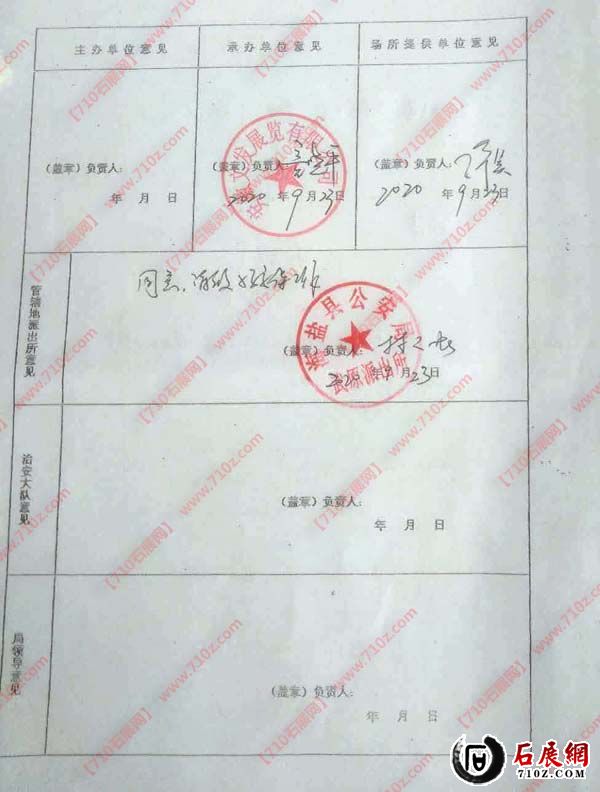 主办单位意见
承办单位意见
场所提供单位意见
(盖章)负责人:
年 月 日
展览有限公司
(盖章)负责人:
2020 年 9 月 23 日
(盖章)负责人:
2020 年 9 月 23 日
管辖地派出所意见
同意,请做好
海盐县公安局
派出所
(盖章)负责人:
2020 年 9 月 23 日
治安大队意见
(盖章)负责人:
年 月 日
局领导意见
(盖章)负责人:
年 月 日
【710石展网】www.710z.com
石展網
710Z.COM